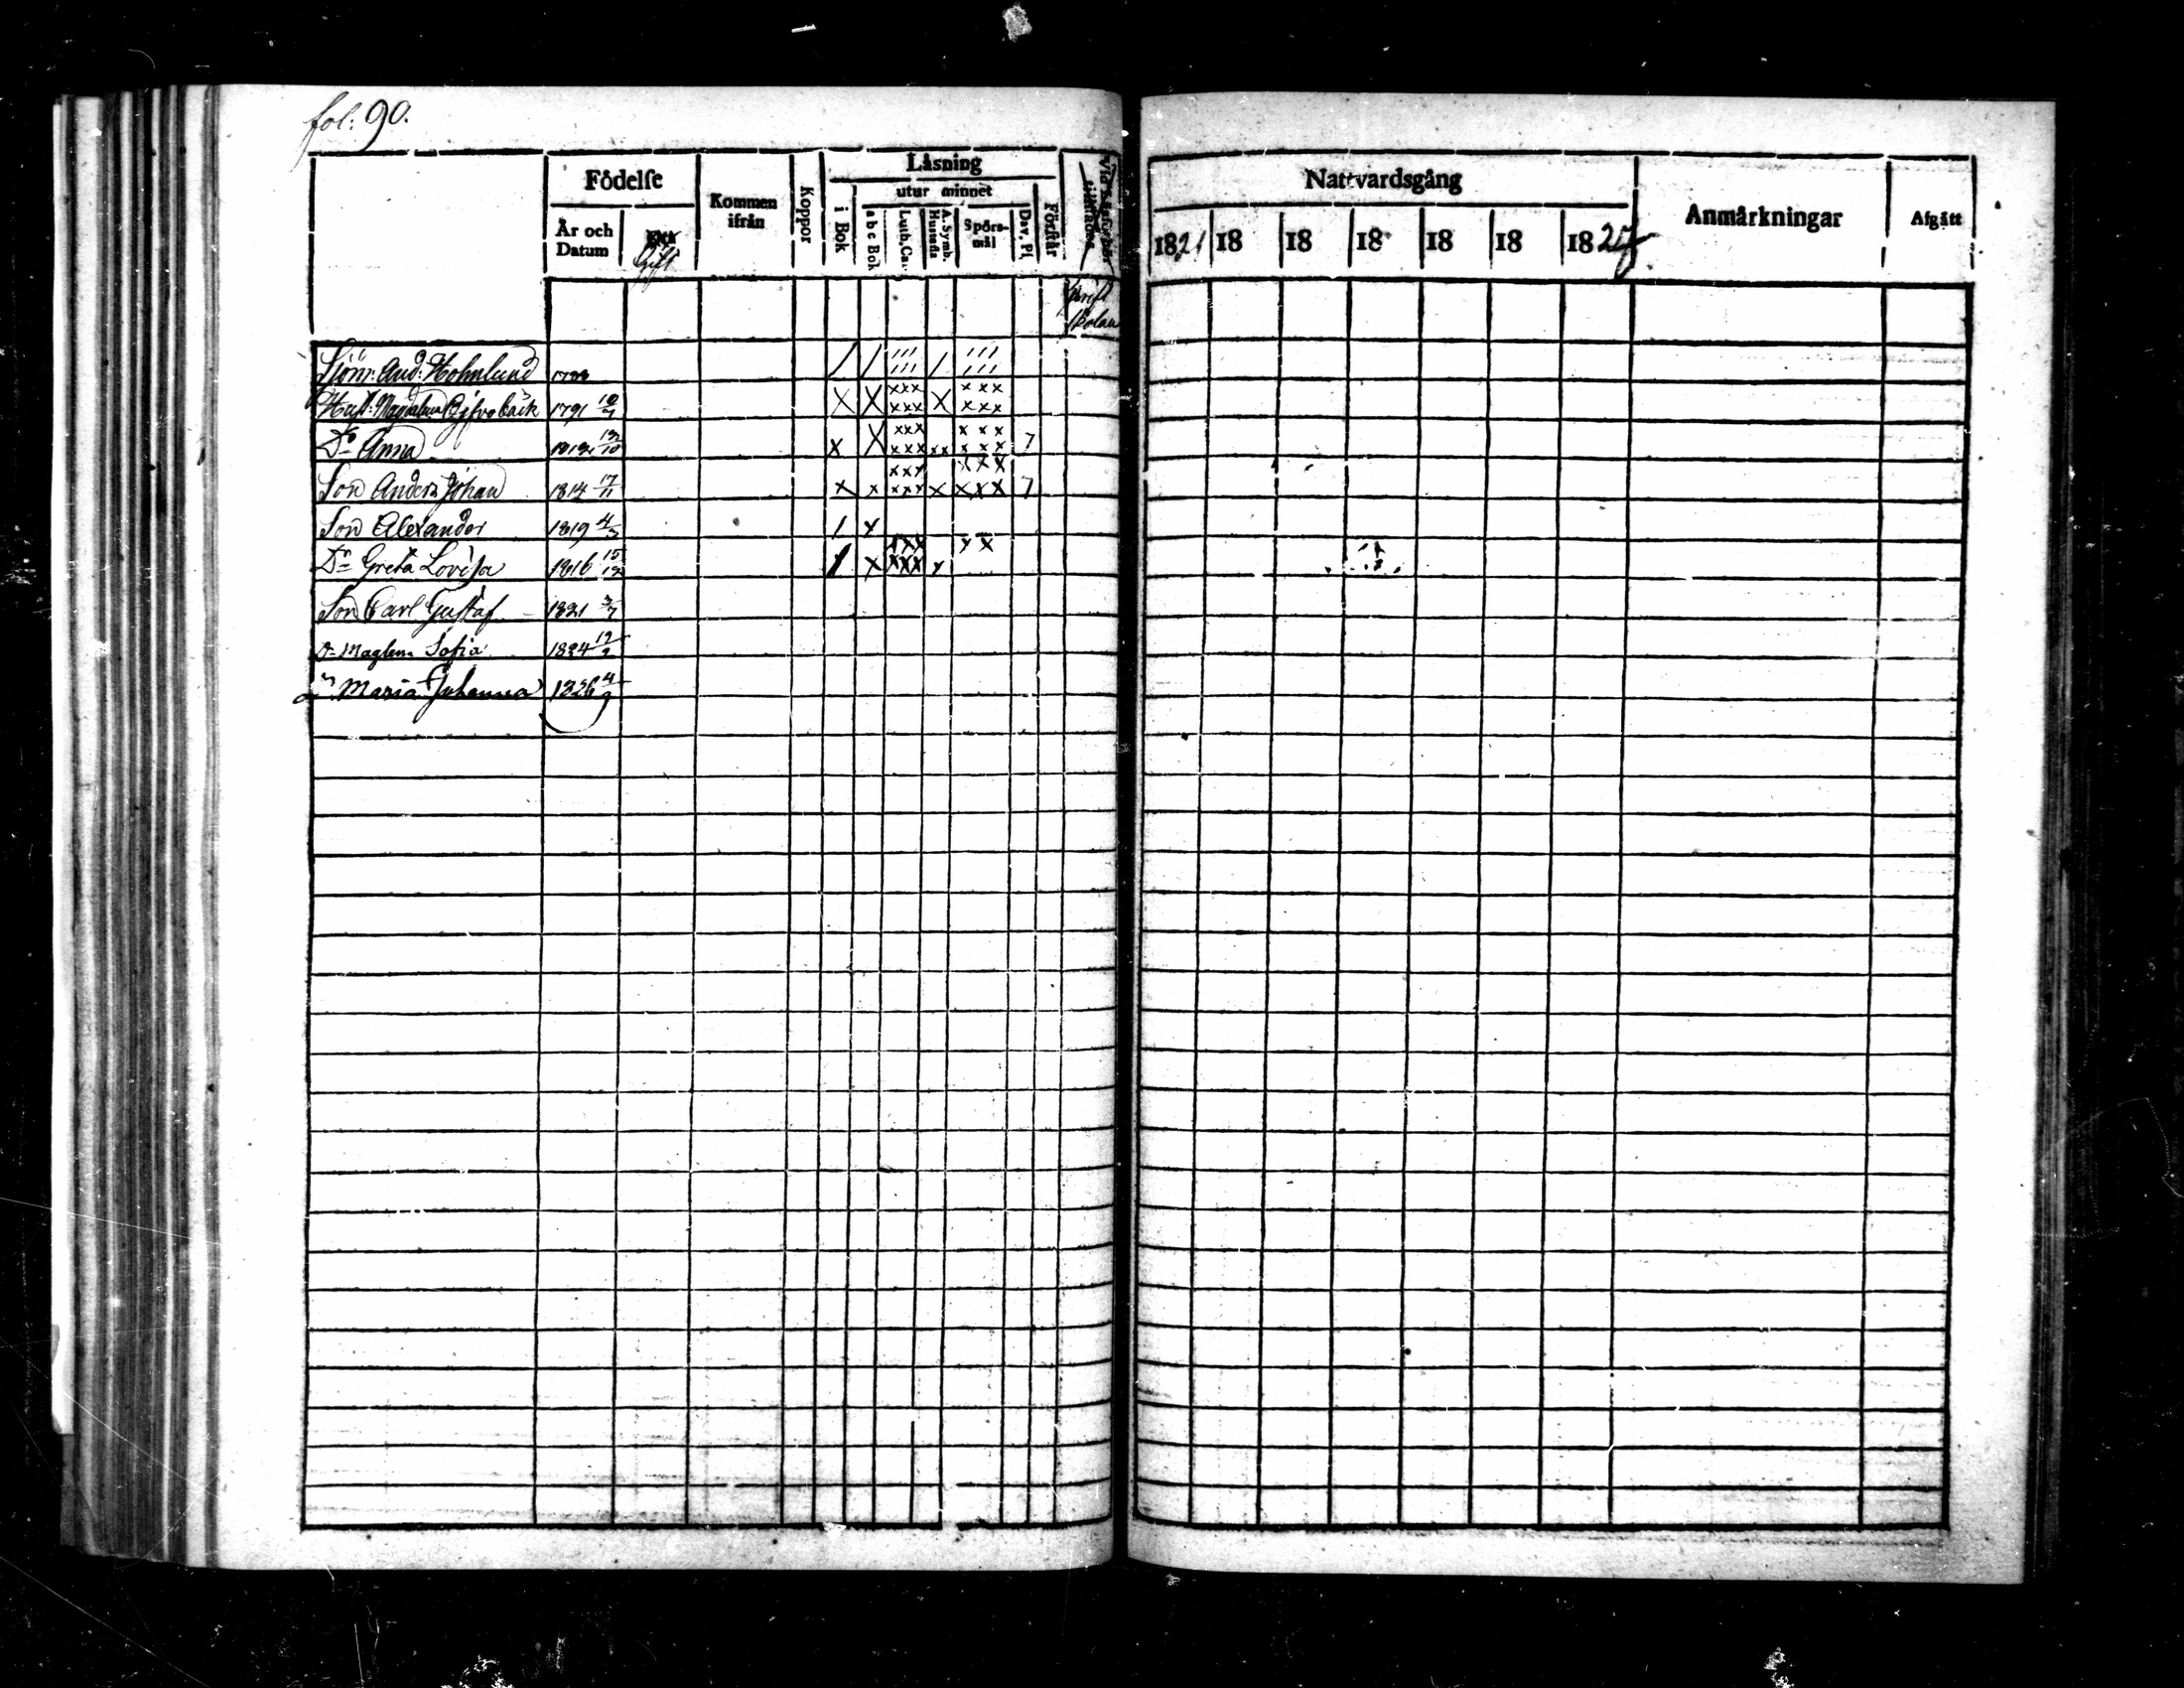 fol: 90.
Födelse
Kommen ifrån
Koppor
Läsning
utur minnet
År och Datum
Gift
i Bok
a b c Bok
Luth. Ca.
A. Symb. Hustafla
Spörs-mål
Dav. Ps
Förstår
skrift skolan
Nattvardsgång
Anmärkningar
Afgått
1821 18 18 18 18 18 1827
Sjöm: And: Holmlund 1788 / / /// /// / /// ///
Hust: Magdalena 1791 10/7 X X xxx xxx X xxx xxx
Dr Anna 1812 12/10 x X xxx xxx xx xxx xxx 7
Son Anders Johan 1814 17/11 x x xxx xxx x xxx xxx 7
Son Alexander 1819 4/3 / x
Dr Greta Lovisa 1816 15/12 / x xxx xxx x x x
Son Carl Gustaf 1821 3/7
Dr Maglena Sofia 1824 12/2
Dr Maria Johanna 1826 4/9